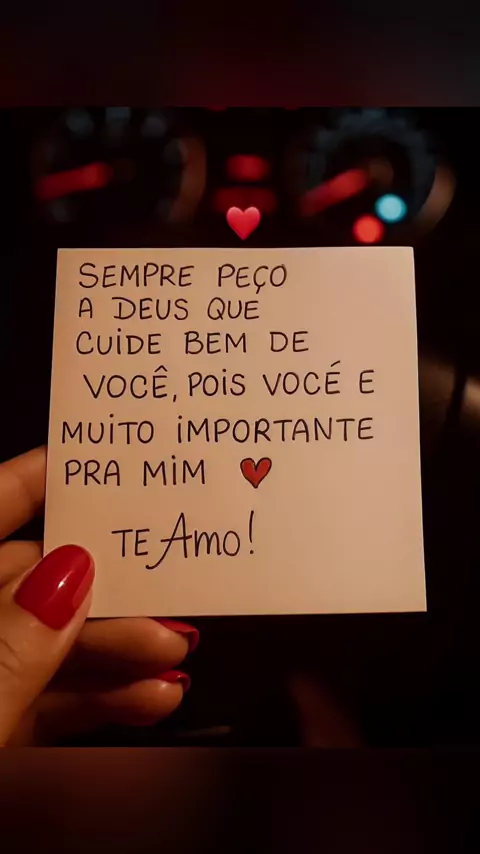 SEMPRE PEÇO
A DEUS QUE
CUIDE BEM DE
VOCÊ, POIS VOCÉ E
MUITO IMPORTANTE
PRA MIM ❤
TE Amo!